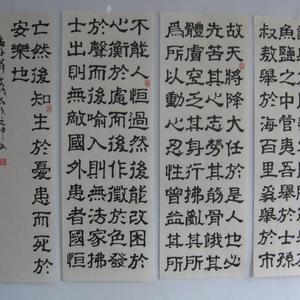 魚鹽之中管夷吾舉於士孫
叔敖舉於海百里奚舉於市
故天將降大任於是人也必
先苦其心志勞其筋骨餓其
體膚空乏其身行拂亂其所
爲所以動心忍性曾益其所
不能人恒過然後能改困於
心衡於慮而後作徵於色發
於聲而後喻入則無法家拂
士出則無敵國外患者國恒
亡然後知生於憂患而死於
安樂也